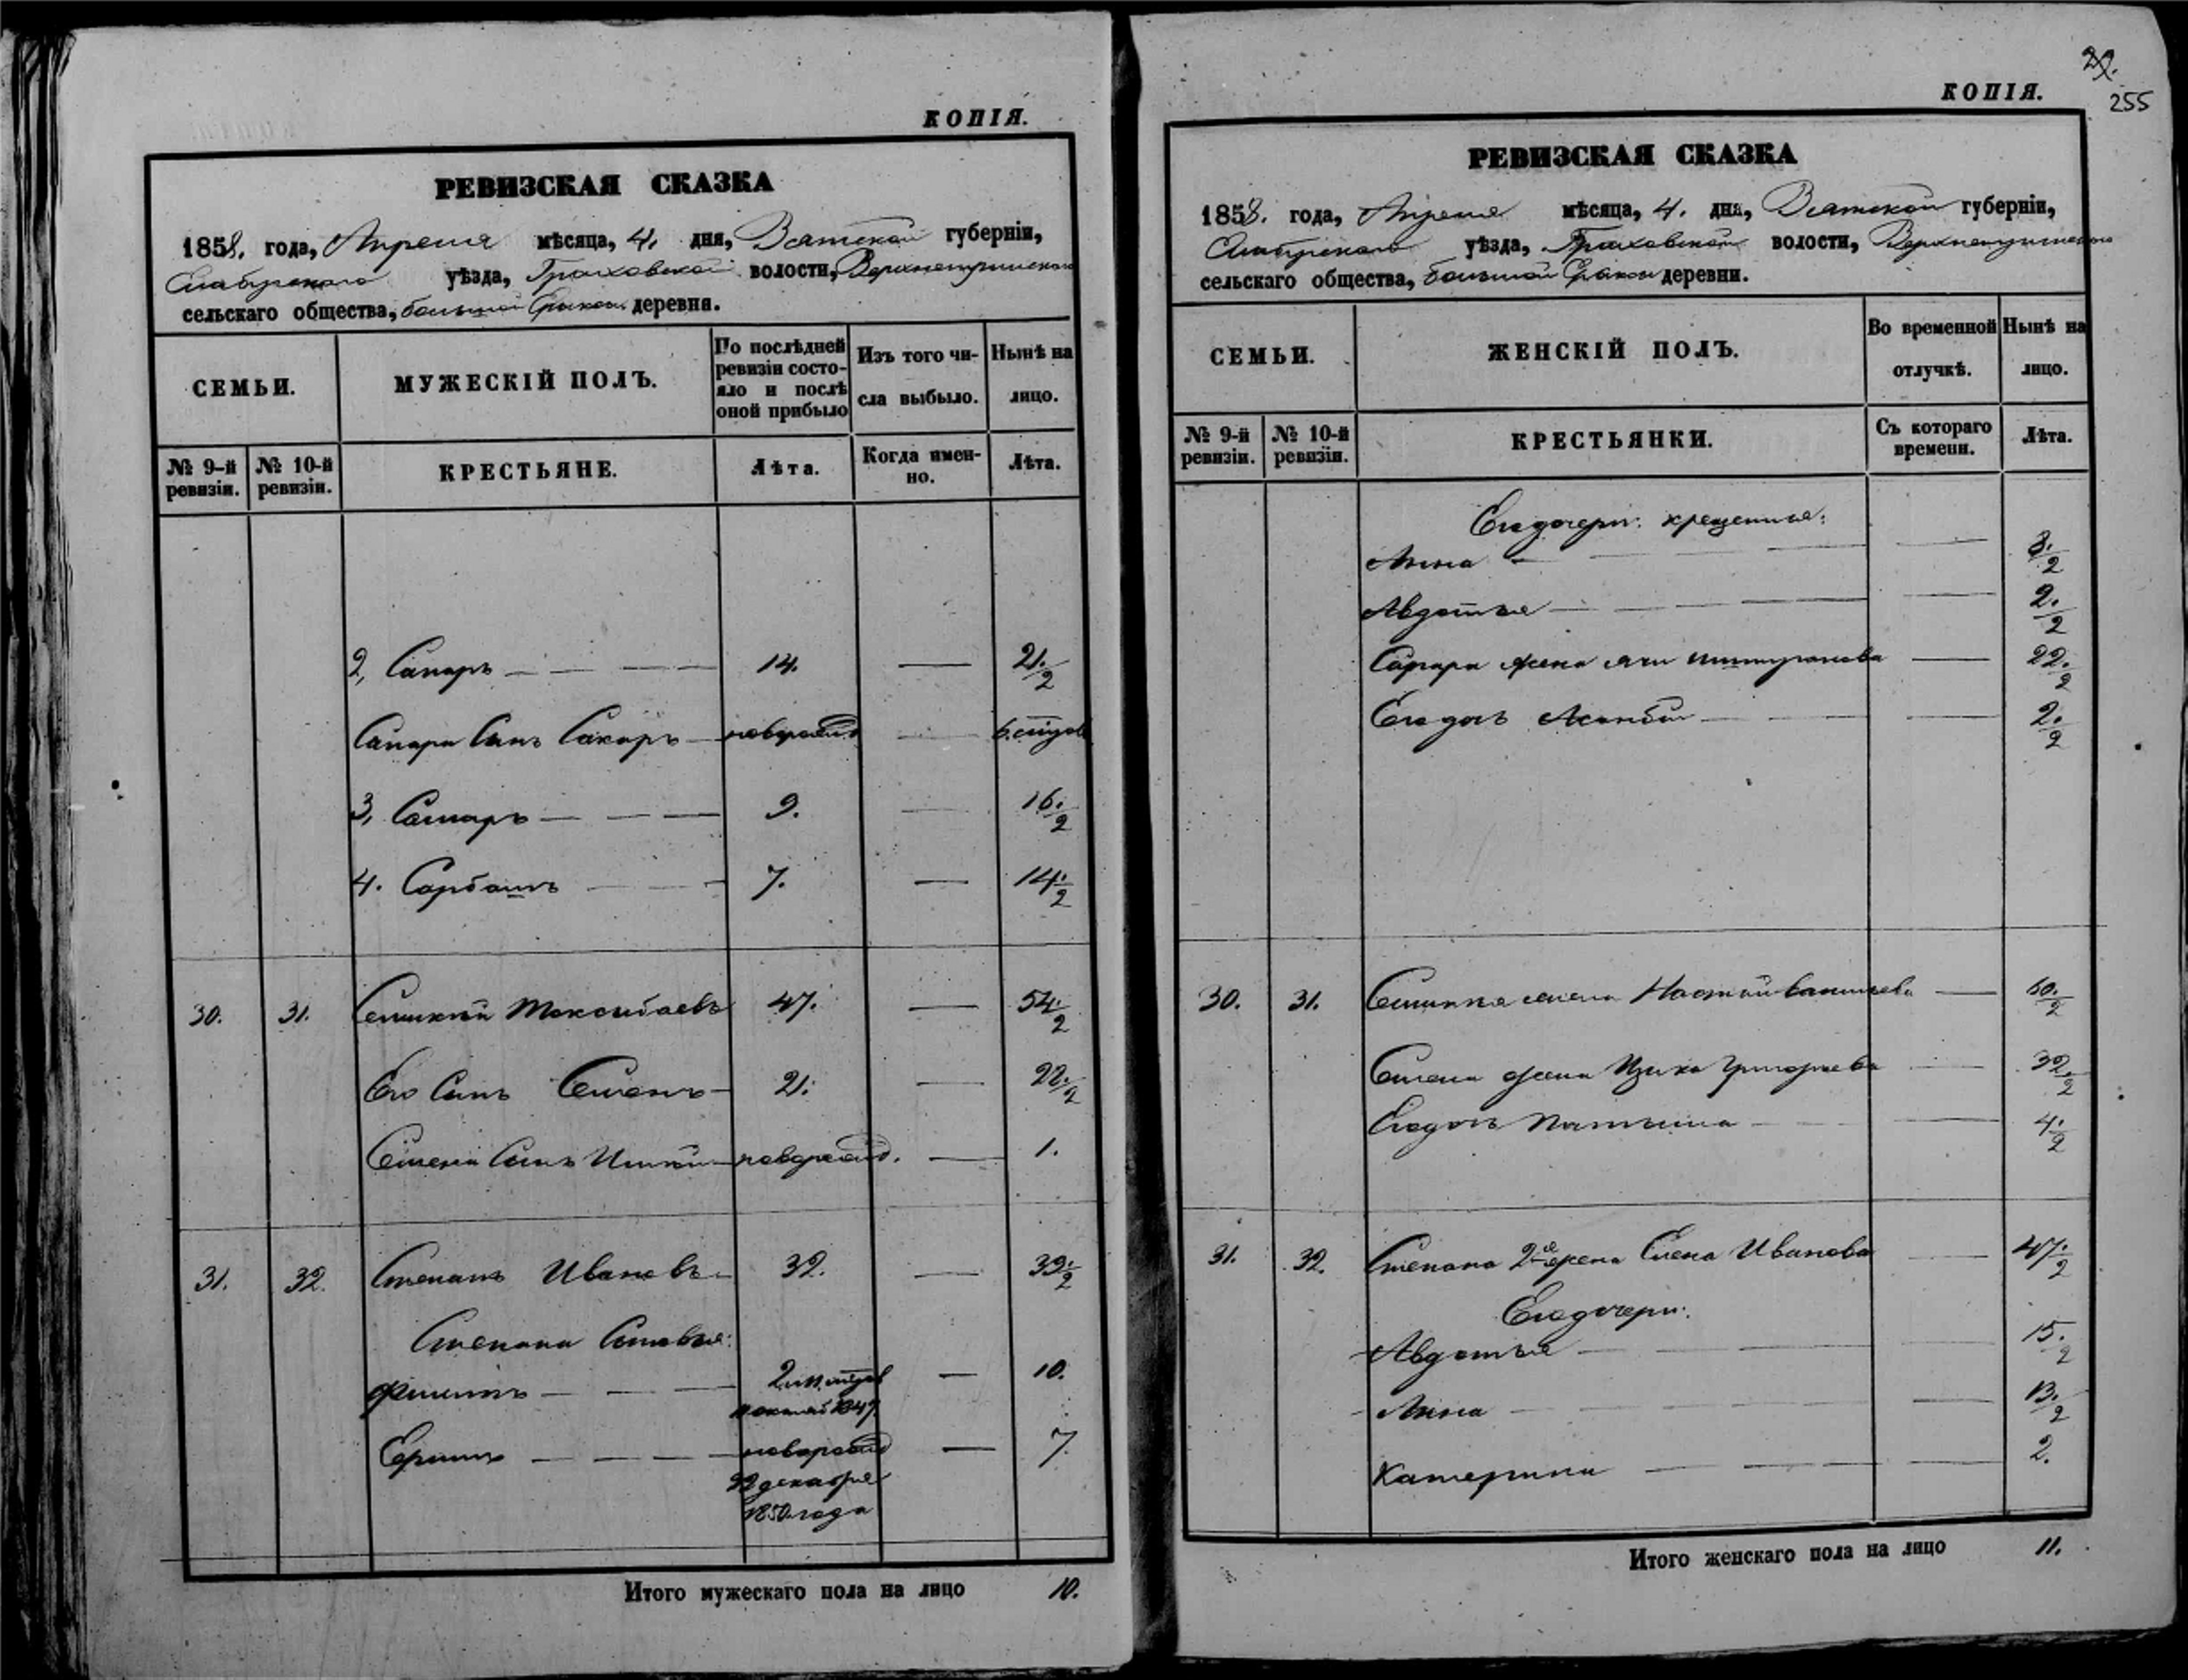 КОПІЯ.
РЕВИЗСКАЯ СКАЗКА
1858. года, Апреля мѣсяца, 4. дня, Вятской губерніи,
Елабугскаго уѣзда, Граховской волости,
сельскаго общества, большой Ерыксы деревня.
СЕМЬИ.
МУЖЕСКІЙ ПОЛЪ.
По послѣдней ревизіи состояло и послѣ оной прибыло
Изъ того числа выбыло.
Нынѣ на лицо.
№ 9-й ревизіи.
№ 10-й ревизіи.
КРЕСТЬЯНЕ.
Лѣта.
Когда именно.
Лѣта.
2, Сапаръ 14. 21 1/2
Сапара Сынъ Сакаръ новорожд
3, 9. 16 1/2
4. Сарбашъ 7. 14 1/2
30. 31. 47. 54 1/2
Его Сынъ Семенъ 21. 22 1/2
Семена Сынъ новорожд. 1.
31. 32. Степанъ Ивановъ 32. 39 1/2
Степана Сыновья:
Филипъ 10.
новорожд 7.
22 декабря
1850 года
Итого мужескаго пола на лицо 10.
29.
255
КОПІЯ.
РЕВИЗСКАЯ СКАЗКА
1858. года, Апреля мѣсяца, 4. дня, Вятской губерніи,
Елабугскаго уѣзда, Граховской волости,
сельскаго общества, большой Ерыксы деревни.
СЕМЬИ.
ЖЕНСКІЙ ПОЛЪ.
Во временной отлучкѣ.
Нынѣ на лицо.
№ 9-й ревизіи.
№ 10-й ревизіи.
КРЕСТЬЯНКИ.
Съ котораго времени.
Лѣта.
Его дочери: крещенные:
Анна 3 1/2
Авдотья 2 1/2
Сапара жена 22 1/2
Его дочь 2 1/2
30. 31. 50 1/2
Семена жена Григорьева 32 1/2
Его дочь 4 1/2
31. 32. Степана 2я жена Елена Иванова 47 1/2
Его дочери:
Авдотья 15 1/2
Анна 13 1/2
Катерина 2.
Итого женскаго пола на лицо 11.